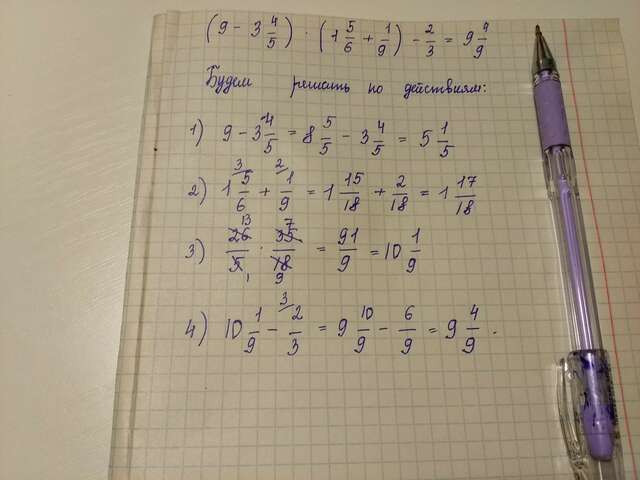 (9 - 3 4/5) · (1 5/6 + 1/9) - 2/3 = 9 4/9
Будем решать по действиям:
1) 9 - 3 4/5 = 8 5/5 - 3 4/5 = 5 1/5
2) 1 5/6 + 1/9 = 1 15/18 + 2/18 = 1 17/18
3) 26/5 · 35/18 = 91/9 = 10 1/9
4) 10 1/9 - 2/3 = 9 10/9 - 6/9 = 9 4/9.